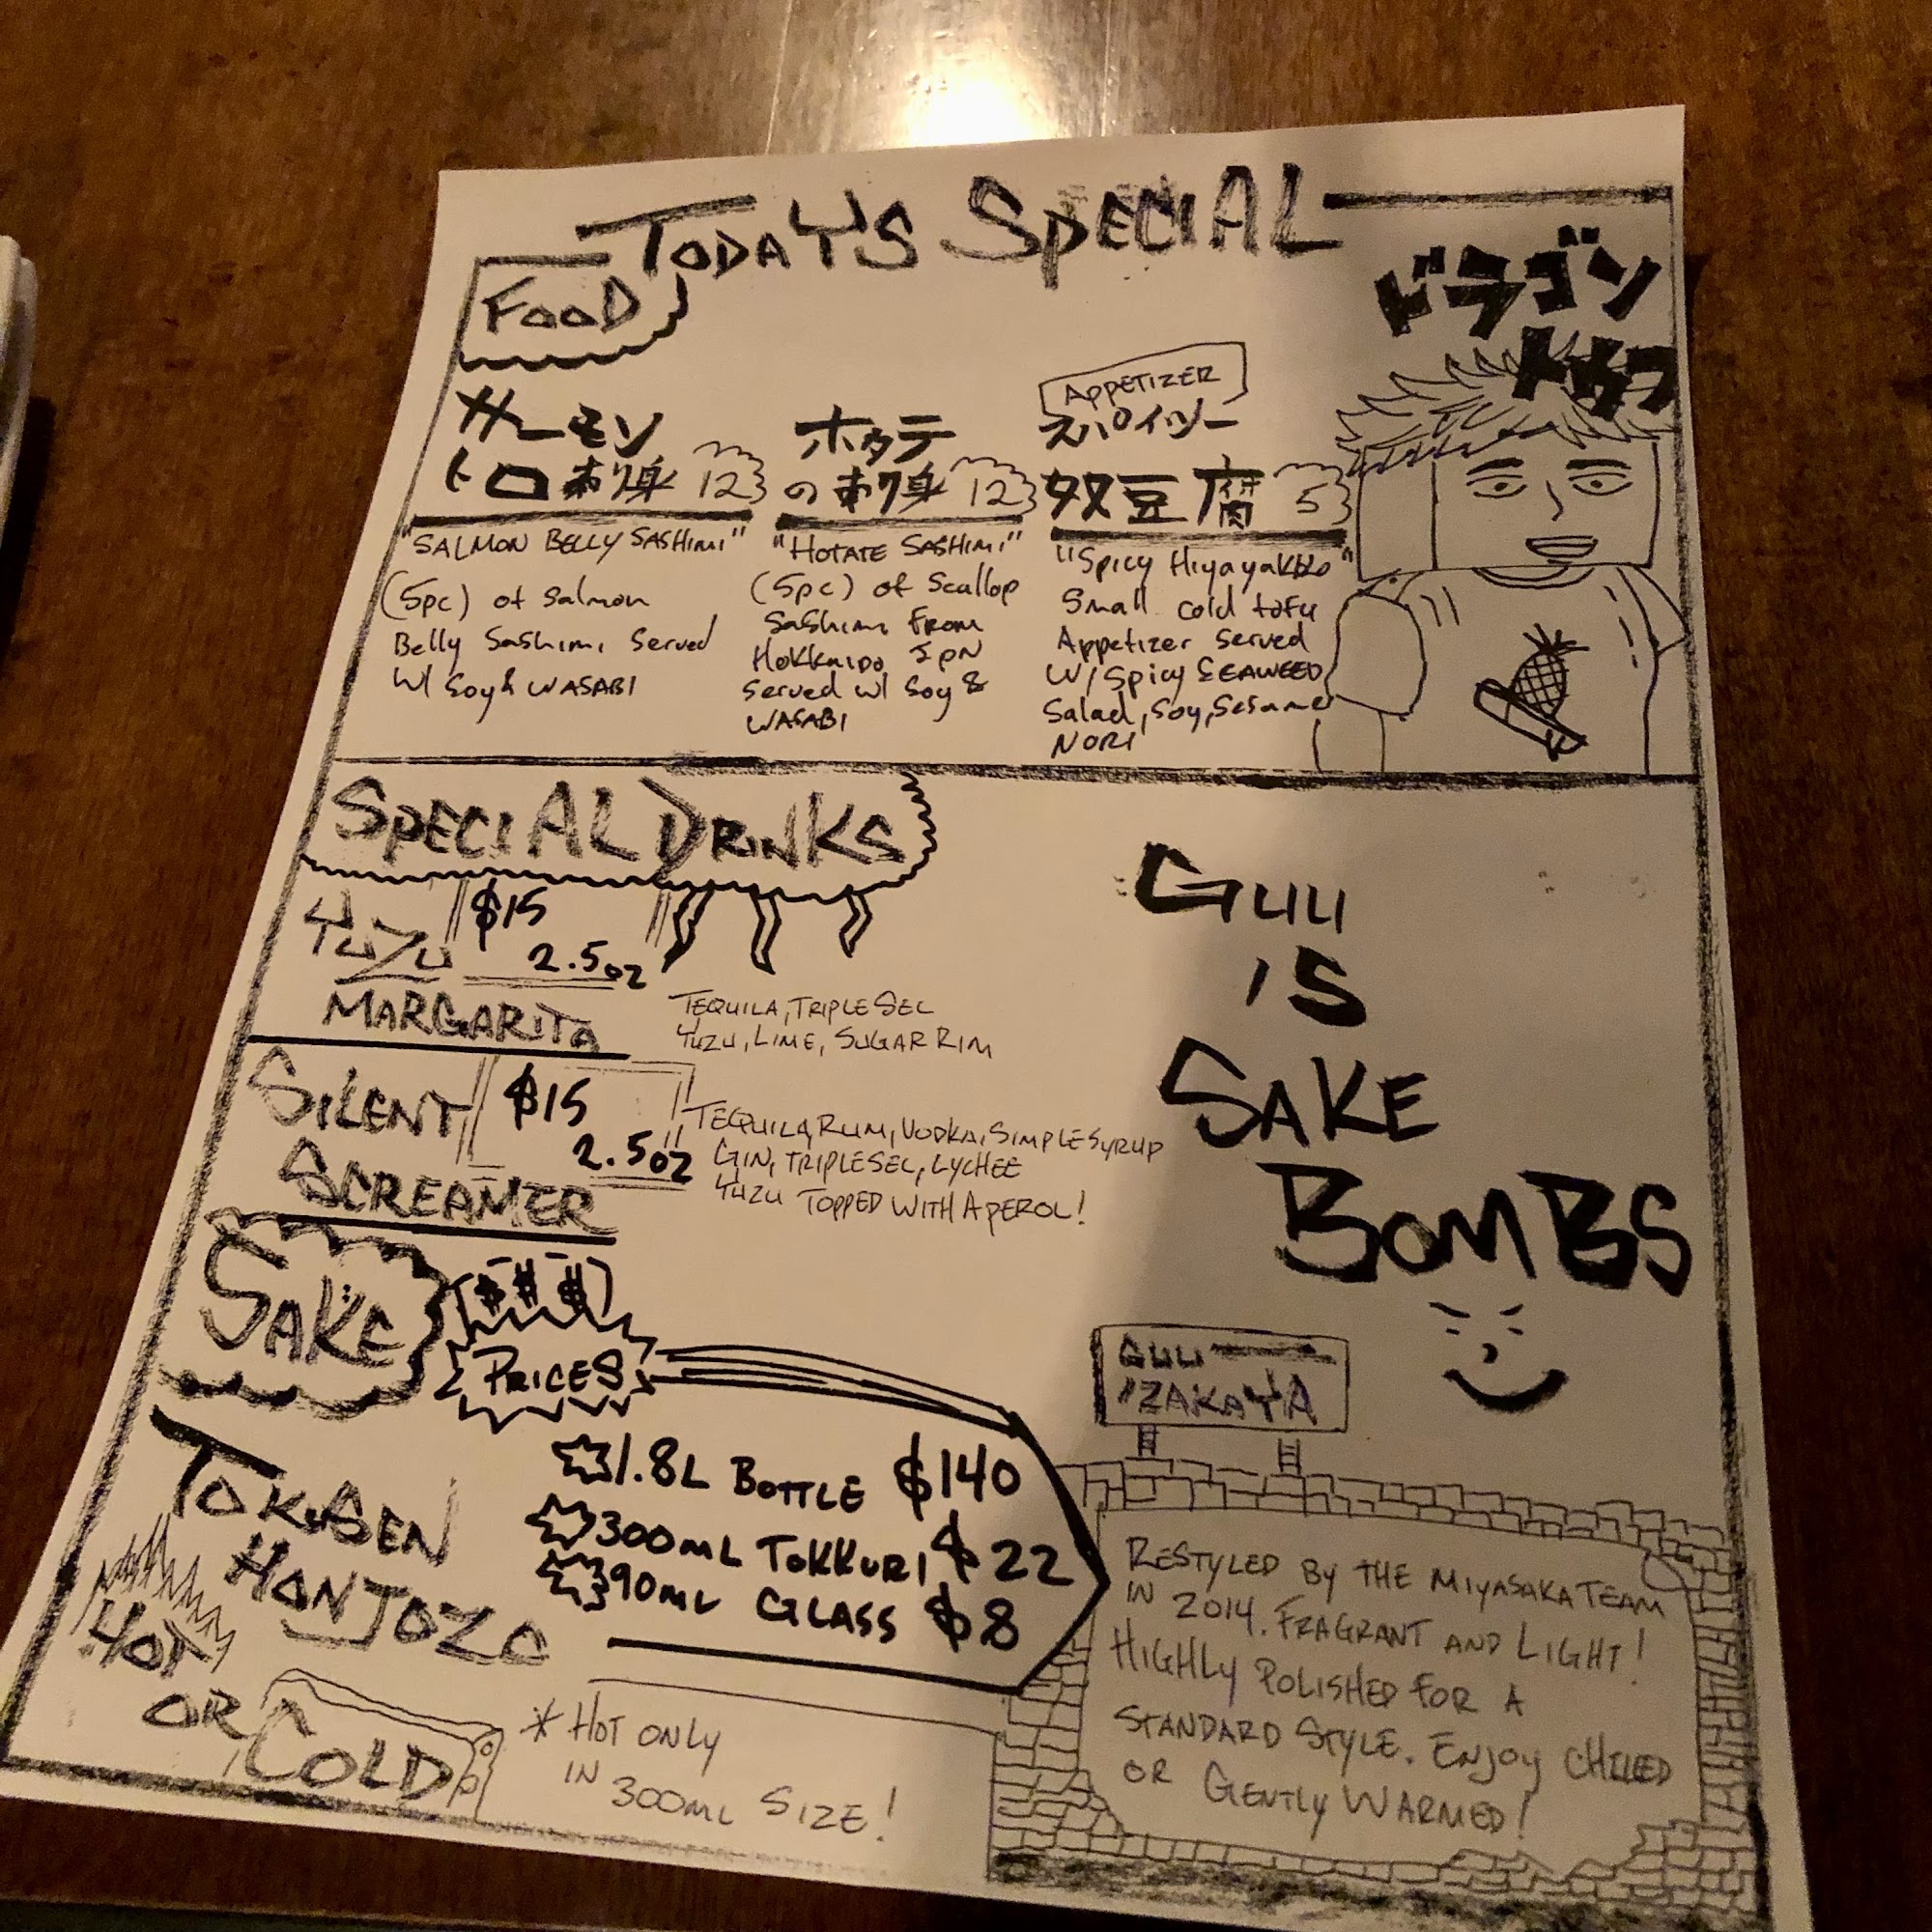 TODAY'S SPECIAL
FOOD
ドラゴン
サーモン
トロ刺身 12
"SALMON BELLY SASHIMI"
(5pc) of Salmon
Belly Sashimi Served
W/ Soy & WASABI
ホタテ
の刺身 12
"HOTATE SASHIMI"
(5pc) of Scallop
Sashimi From
Hokkaido JPN
Served w/ Soy &
WASABI
APPETIZER
スパイシー
奴豆腐 5
"Spicy Hiyayakko"
Small cold tofu
Appetizer Served
W/ Spicy SEAWEED
Salad, Soy, Sesame
NORI
SPECIAL DRINKS
YUZU $15
2.5oz
MARGARITA
TEQUILA, TRIPLE SEC
YUZU, LIME, SUGAR RIM
SILENT $15
2.5oz
SCREAMER
TEQUILA, RUM, VODKA, SIMPLE SYRUP
GIN, TRIPLE SEC, LYCHEE
YUZU TOPPED WITH APEROL!
GUU
IS
SAKE
BOMBS
SAKE
($ $ $)
PRICES
TOKUSEN
HONJOZO
HOT
OR COLD
1.8L BOTTLE $140
300ML TOKKURI $22
90ML GLASS $8
* HOT ONLY
IN 300ML SIZE!
GUU
IZAKAYA
RESTYLED BY THE MIYASAKA TEAM
IN 2014. FRAGRANT AND LIGHT!
HIGHLY POLISHED FOR A
STANDARD STYLE. ENJOY CHILLED
OR GENTLY WARMED!